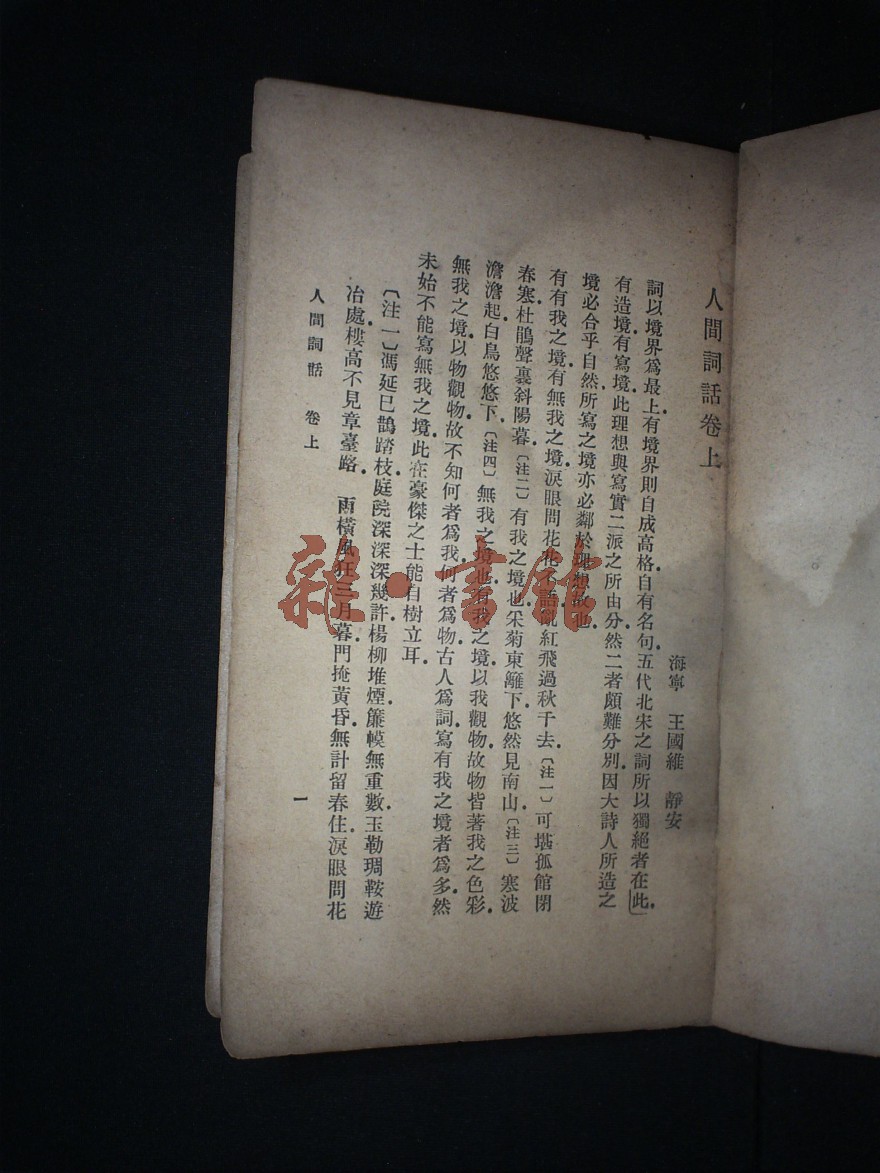 人間詞話卷上
海寧 王國維 靜安
詞以境界爲最上.有境界則自成高格.自有名句.五代北宋之詞所以獨絕者在此.
有造境.有寫境.此理想與寫實二派之所由分.然二者頗難分別.因大詩人所造之
境必合乎自然.所寫之境亦必鄰於理想故也.
有有我之境.有無我之境.淚眼問花花不語.亂紅飛過秋千去.〔注一〕可堪孤館閉
春寒.杜鵑聲裏斜陽暮.〔注二〕有我之境也.采菊東籬下.悠然見南山.〔注三〕寒波
澹澹起.白鳥悠悠下.〔注四〕無我之境也.有我之境.以我觀物.故物皆著我之色彩.
無我之境.以物觀物.故不知何者爲我.何者爲物.古人爲詞.寫有我之境者爲多.然
未始不能寫無我之境.此在豪傑之士能自樹立耳.
〔注一〕馮延巳鵲踏枝.庭院深深深幾許.楊柳堆煙.簾幙無重數.玉勒琱鞍遊
冶處.樓高不見章臺路. 雨橫風狂三月暮.門掩黃昏.無計留春住.淚眼問花
人間詞話 卷上
一
雜·書館